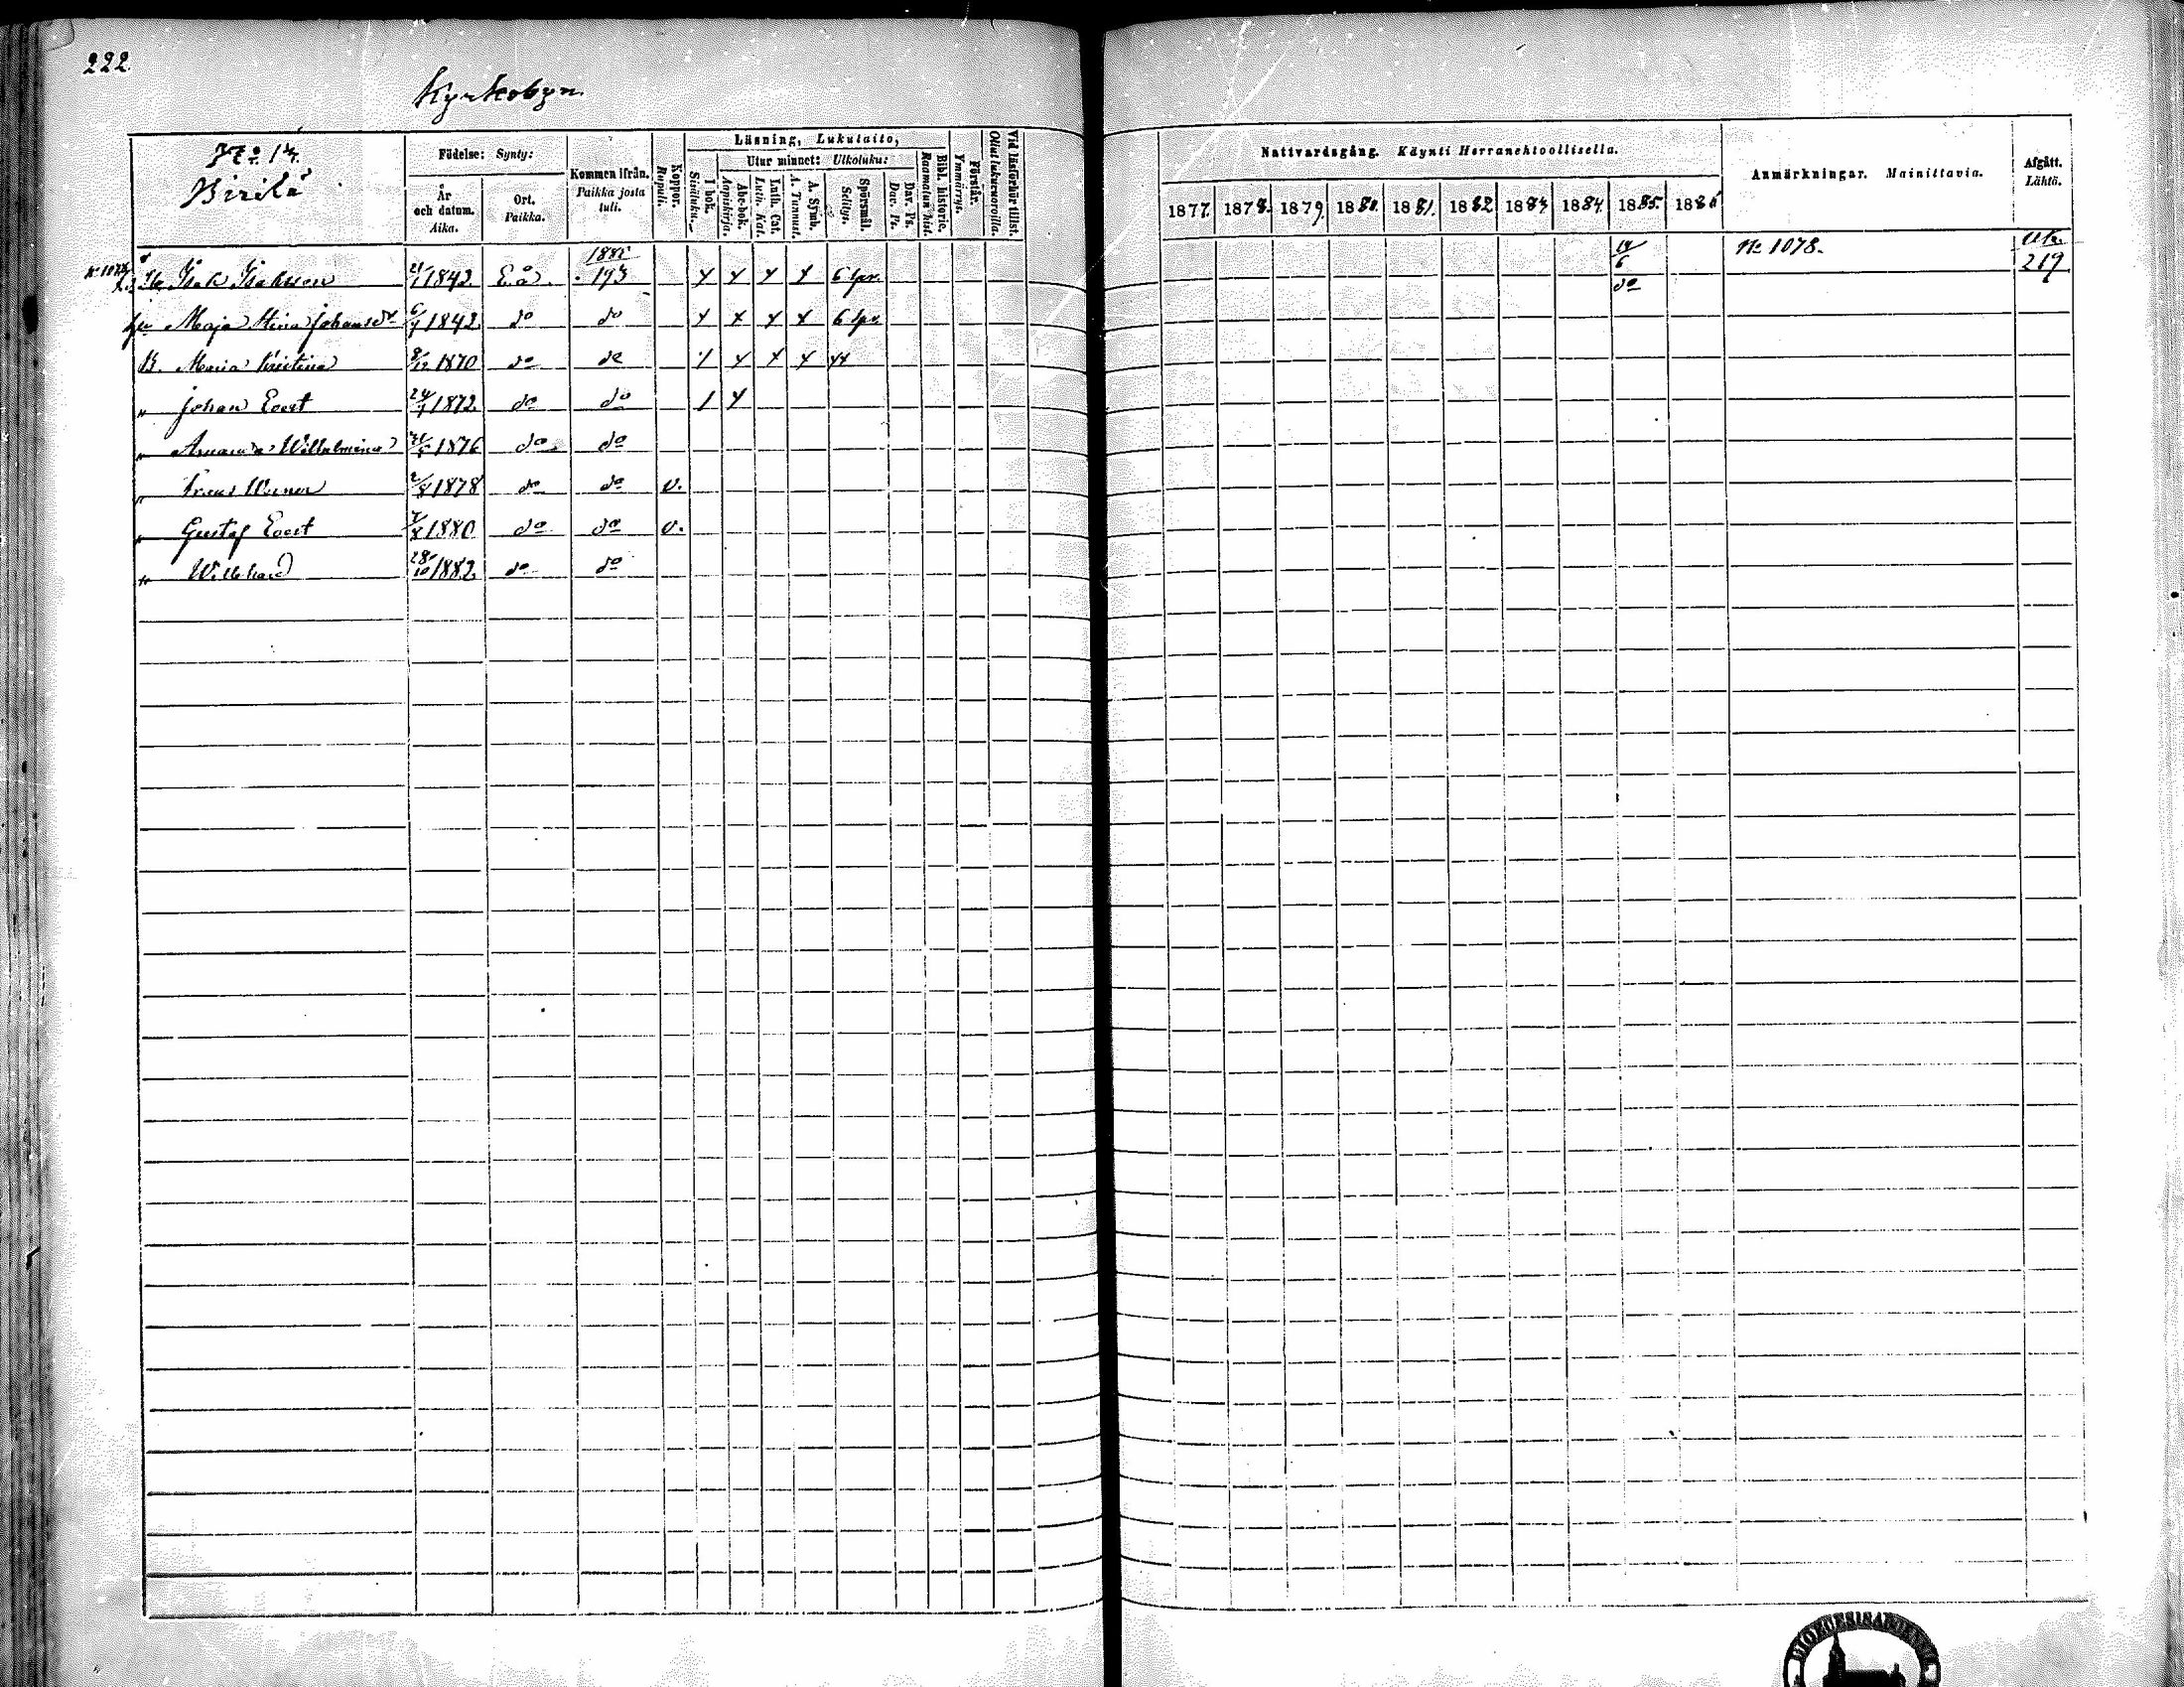 222.
Kyrkobyn
No 14.
Birilä
Födelse: Synty:
År och datum. Aika.
Ort. Paikka.
Kommen ifrån. Paikka josta tuli.
Koppor. Rupuli.
Läsning, Lukutaito,
I bok. Sisäluku.
Utur minnet: Ulkoluku:
Abc-bok. Aapiskirja.
Luth. Cat. Luth. Kat.
A. Symb. A. Tunnust.
Spörsmål. Selitys.
Dav. Ps. Dav. Ps.
Bibl. historie. Raamatun hist.
Förstår. Ymmärrys.
Vid läsförhör tillst. Ollut lukuvuoroilla.
Nattvardsgång. Käynti Herranehtoollisella.
1877. 1878. 1879. 1880. 1881. 1882. 1883 1884 1885. 1886
Anmärkningar. Mainittavia.
Afgått. Lähtö.
No 1078 Isak Isaksson 21/1 1842. Eå. 1885 193 x x x x 6 spr. 14/6 No 1078. 219
hu Maja Stina Johansdr 6/1 1842. do do x x x x 6 spr. do
B. Maria Kristina 8/12 1870 do do x x x x xx
" Johan Evert 24/1 1872. do do 1 x
" Amanda Wilhelmina 1876 do do
" Frans Werner 2/8 1878 do do v.
" Gustaf Evert 1880 do do v.
" Willehard 28/10 1882. do do
DIOECESISABOENSIS